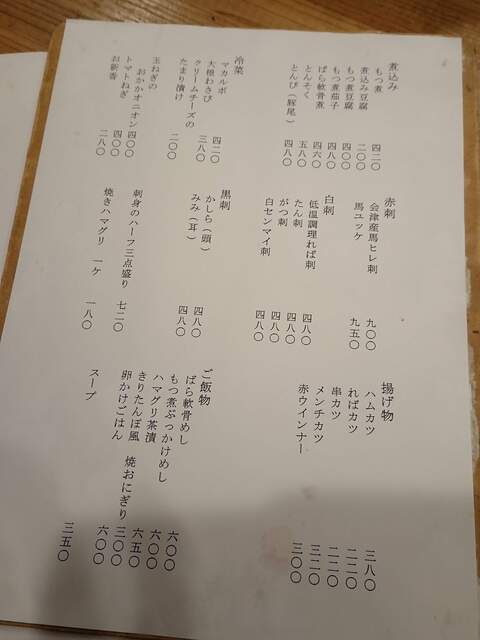 煮込み
もつ煮 四二〇
煮込み豆腐 二〇〇
もつ煮豆腐 四〇〇
もつ煮茄子 四八〇
ばら軟骨煮 四六〇
とんそく 五八〇
とんび（豚尾） 四八〇
冷菜
マカルポ 四二〇
大根わさび 三八〇
クリームチーズの
たまり漬け 二〇〇
玉ねぎの
おかかオニオン 四〇〇
トマトねぎ 四〇〇
お新香 二八〇
赤刺
会津産馬ヒレ刺 九〇〇
馬ユッケ 九五〇
白刺
低温調理れば刺 四八〇
たん刺 四八〇
がつ刺 四八〇
白センマイ刺 四八〇
黒刺
かしら（頭） 四八〇
みみ（耳） 四八〇
刺身のハーフ三点盛り 七二〇
焼きハマグリ 一ケ 一八〇
揚げ物
ハムカツ 三八〇
ればカツ 二二〇
串カツ 二二〇
メンチカツ 三二〇
赤ウインナー 三〇〇
ご飯物
ばら軟骨めし 六〇〇
もつ煮ぶっかけめし 六〇〇
ハマグリ茶漬 六五〇
きりたんぽ風 焼おにぎり 三〇〇
卵かけごはん 六〇〇
スープ 三五〇